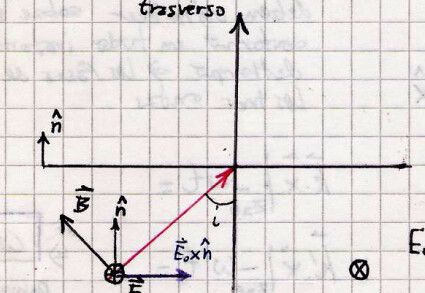 trasverso
n̂
B⃗
n̂
i
E⃗₀×n̂
E₀
E⃗
⊗